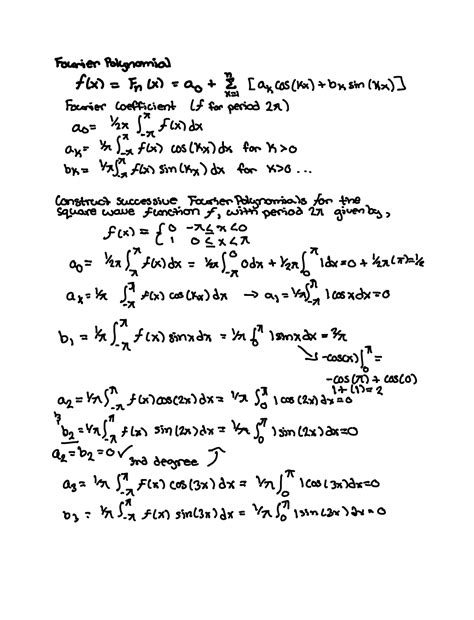 Fourier Polynomial
f(x) = Fn(x) = a₀ + Σ [aₖ cos(kx) + bₖ sin(kx)] n k=1
Fourier Coefficient (f for period 2π)
a₀ = 1/2π ∫_-π^π f(x) dx
aₖ = 1/π ∫_-π^π f(x) cos(kx) dx for k>0
bₖ = 1/π ∫_-π^π f(x) sin(kx) dx for k>0 ...
Construct successive Fourier Polynomials for the
square wave function f, with period 2π given by,
f(x) = { 0 -π≤x<0
1 0≤x<π
a₀ = 1/2π ∫_-π^π f(x) dx = 1/2π ∫_-π^0 0dx + 1/2π ∫_0^π 1dx = 0 + 1/2π (π) = 1/2
aₖ = 1/π ∫_-π^π f(x) cos(kx) dx → a₁ = 1/π ∫_-π^π 1 cosx dx = 0
b₁ = 1/π ∫_-π^π f(x) sinx dx = 1/π ∫_0^π 1 sinx dx = 2/π
↘ -cos(x) |_0^π =
-cos(π) + cos(0)
1 + (1) = 2
a₂ = 1/π ∫_-π^π f(x) cos(2x) dx = 1/π ∫_0^π 1 cos(2x) dx = 0
b₂ = 1/π ∫_-π^π f(x) sin(2x) dx = 1/π ∫_0^π 1 sin(2x) dx = 0
a₂ = b₂ = 0 ✓
3rd degree ↗
a₃ = 1/π ∫_-π^π F(x) cos(3x) dx = 1/π ∫_0^π 1 cos(3x) dx = 0
b₃ = 1/π ∫_-π^π f(x) sin(3x) dx = 1/π ∫_0^π 1 sin(3x) dx = 0